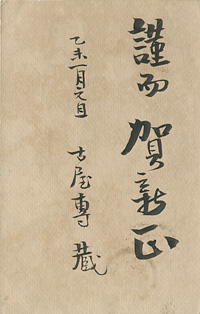 謹而賀新正
乙未一月元旦
古屋專蔵